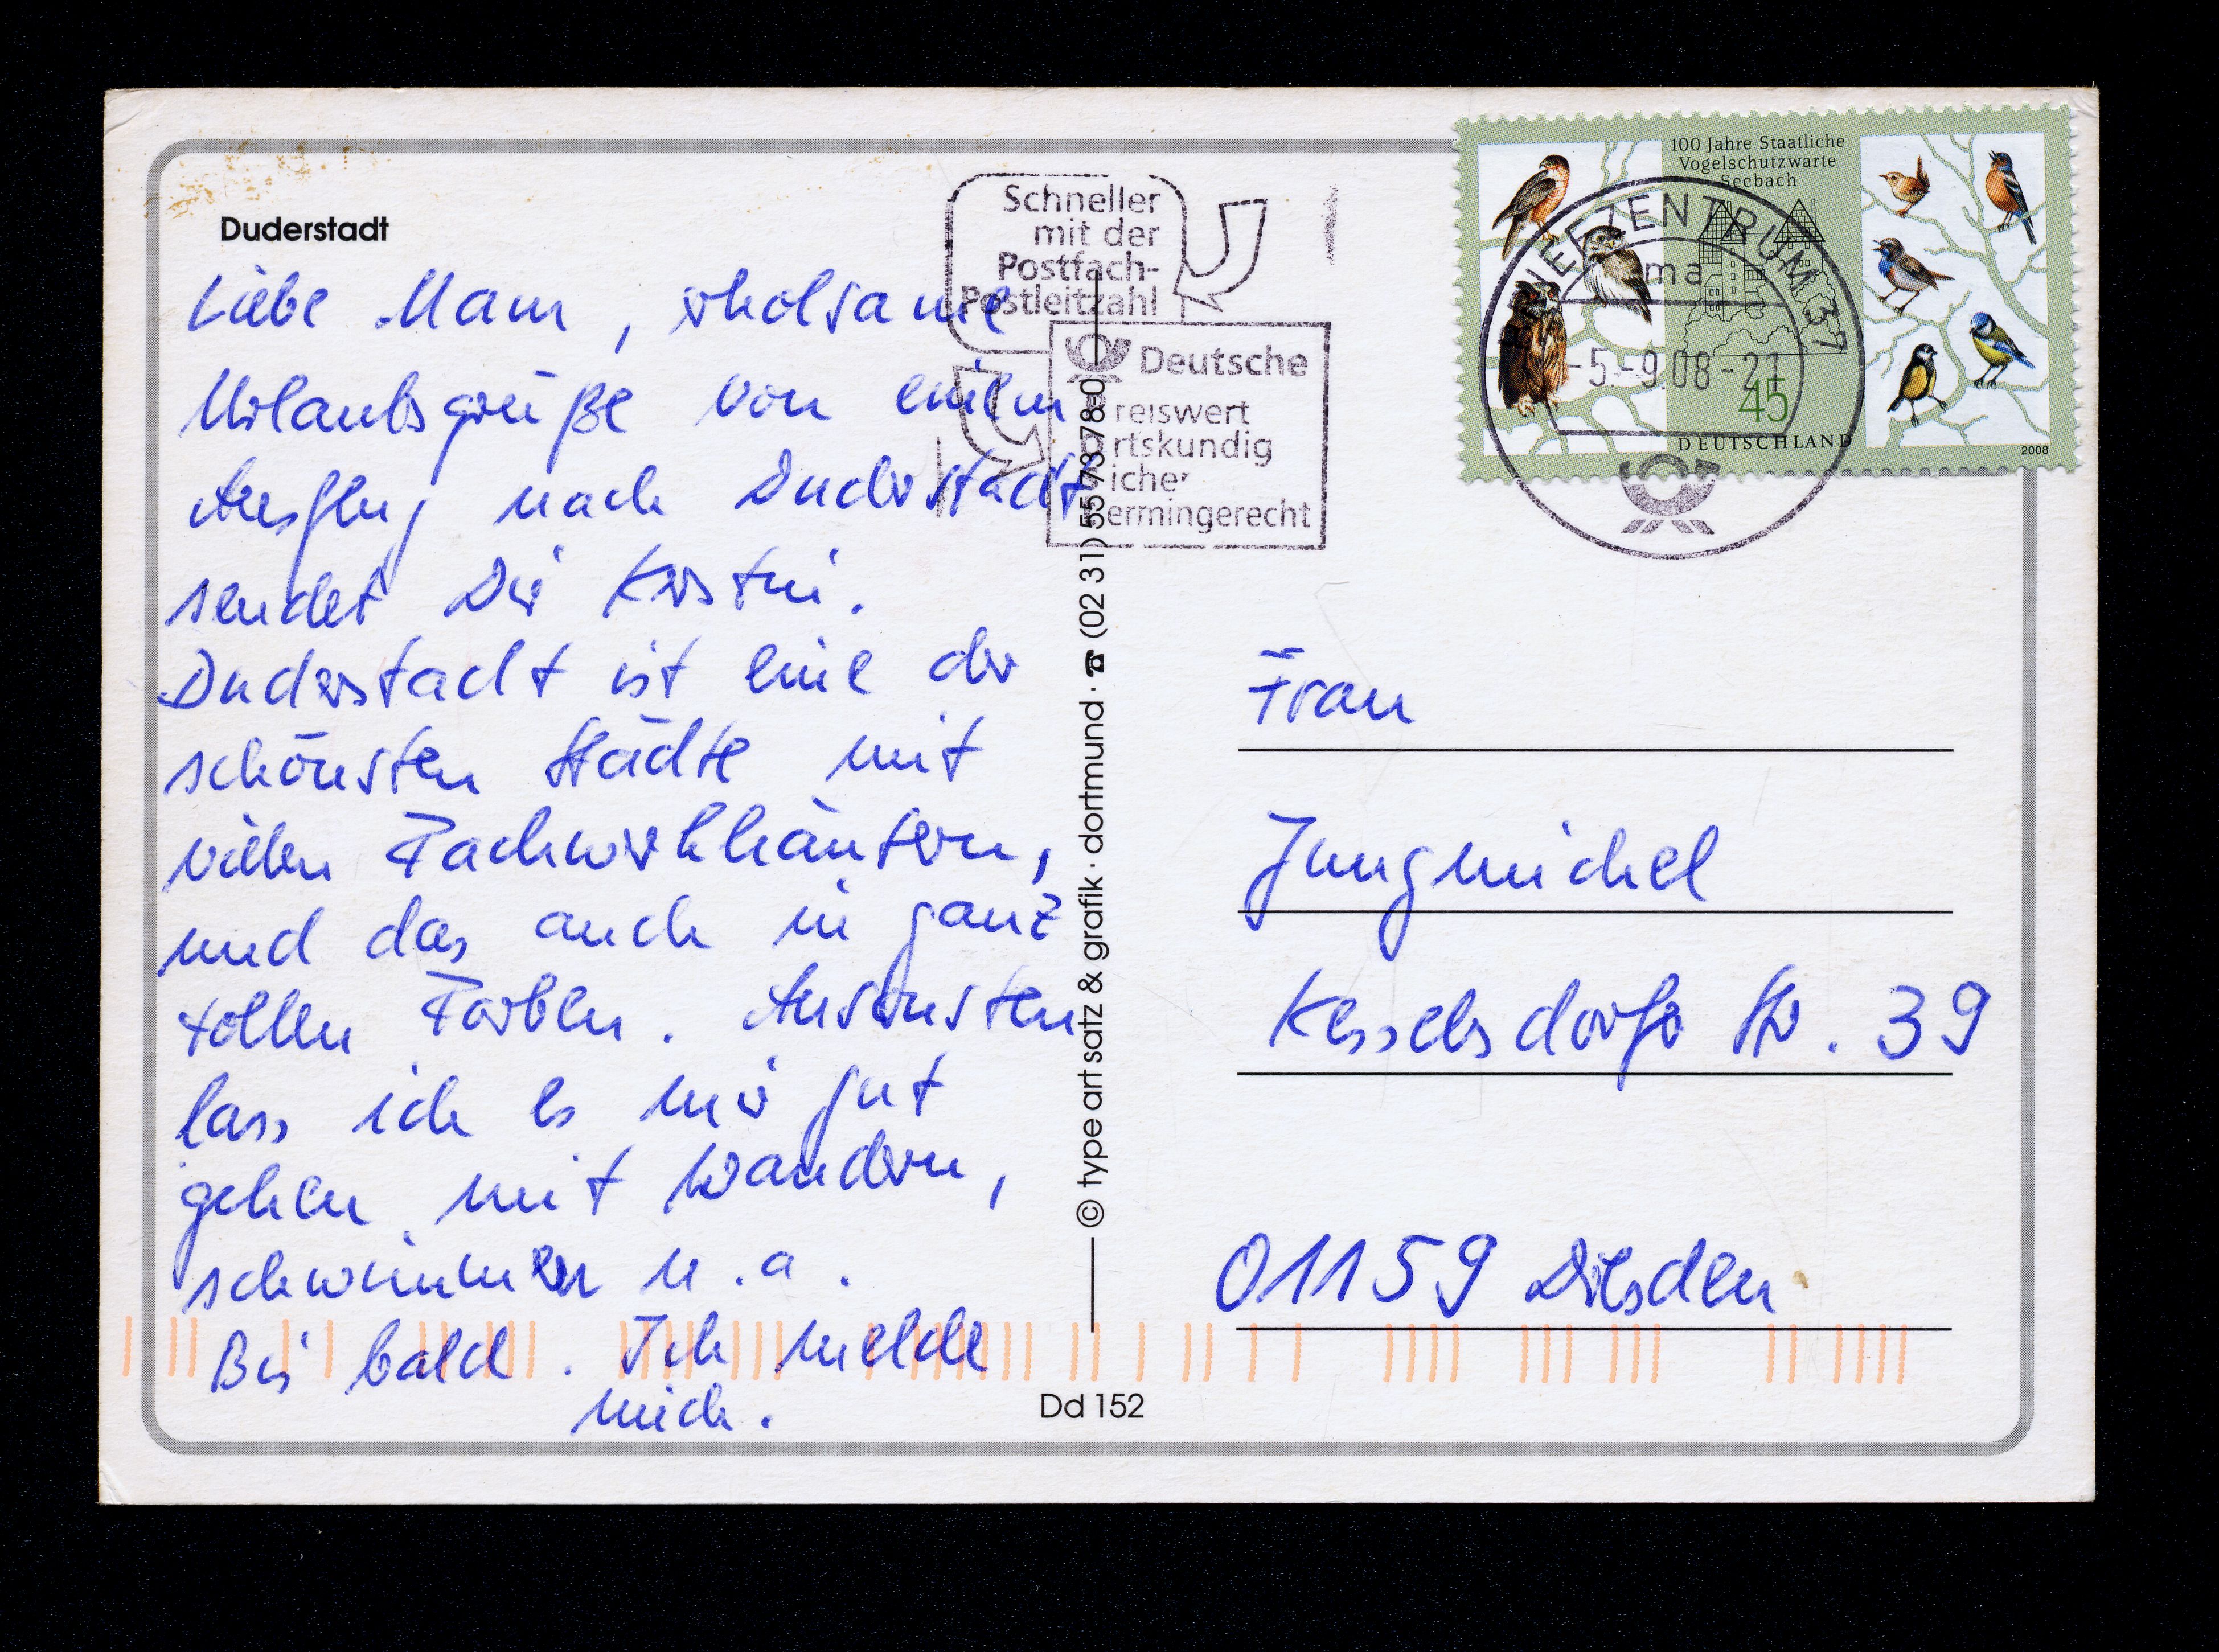 Duderstadt
Liebe Mam, erholsame
Urlaubsgrüße von einem
Ausflug nach Duderstadt
sendet Dir Kerstin.
Duderstadt ist eine der
schönsten Städte mit
vielen Fachwerkhäusern,
und das auch in ganz
tollen Farben. Ansonsten
lass ich es mir gut
gehen mit wandern,
schwimmen u.a.
Bis bald. Ich melde
mich.
Schneller
mit der
Postfach-
Postleitzahl
Deutsche
reiswert
rtskundig
icher
ermingerecht
© type art satz & grafik · dortmund · ☎ (02 31) 55 73 78-0
Dd 152
100 Jahre Staatliche
Vogelschutzwarte
Seebach
45
DEUTSCHLAND
2008
BRIEFZENTRUM 37
ma
-5.-9.08-21
Frau
Jungmichel
Kesselsdorfer Str. 39
01159 Dresden